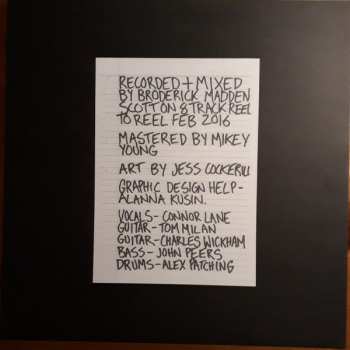 RECORDED + MIXED
BY BRODERICK MADDEN
SCOTT ON 8 TRACK REEL
TO REEL FEB 2016
MASTERED BY MIKEY
YOUNG
ART BY JESS COCKERILL
GRAPHIC DESIGN HELP-
ALANNA KUSIN.
VOCALS- CONNOR LANE
GUITAR- TOM MILAN
GUITAR- CHARLES WICKHAM
BASS- JOHN PEERS
DRUMS- ALEX PATCHING